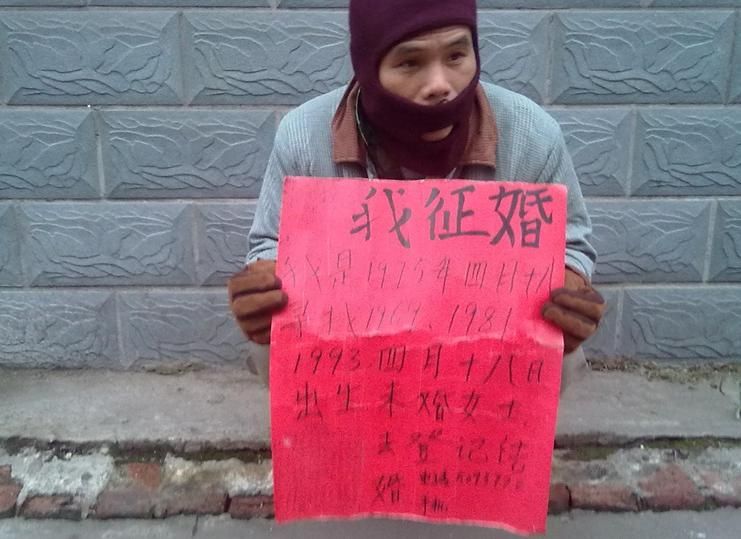 我征婚
我是1975年四月十八
寻找1969、1981
1993.四月十八日
出生未婚女士
去登记结
婚 电话
手机